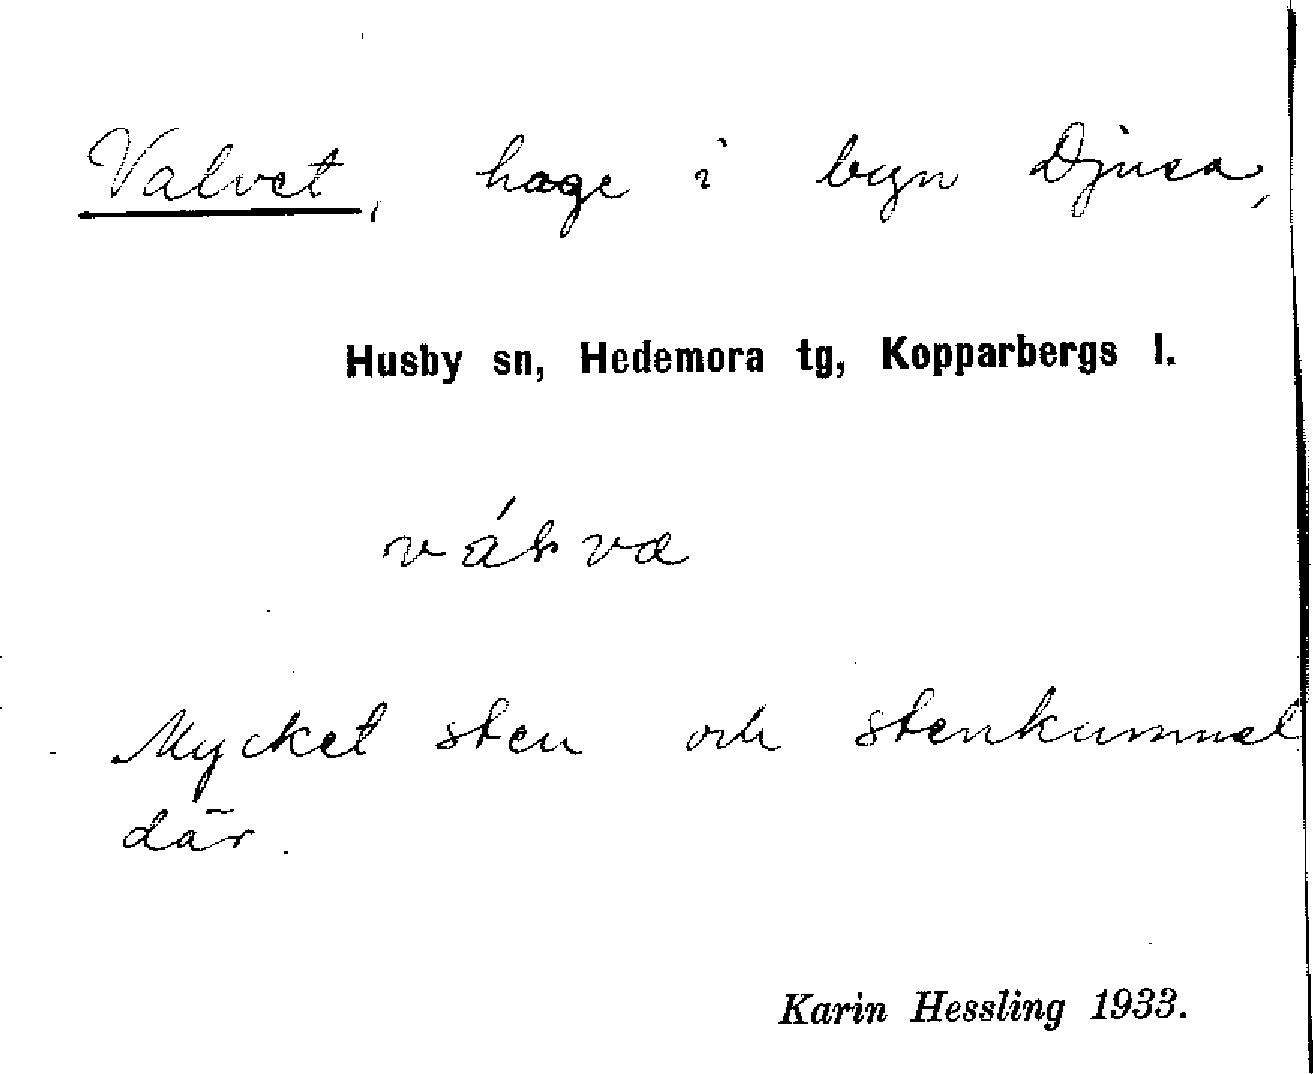 Valvet, hage i byn Djusa,
Husby sn, Hedemora tg, Kopparbergs l.
Mycket sten och stenkummel
där.
Karin Hessling 1933.